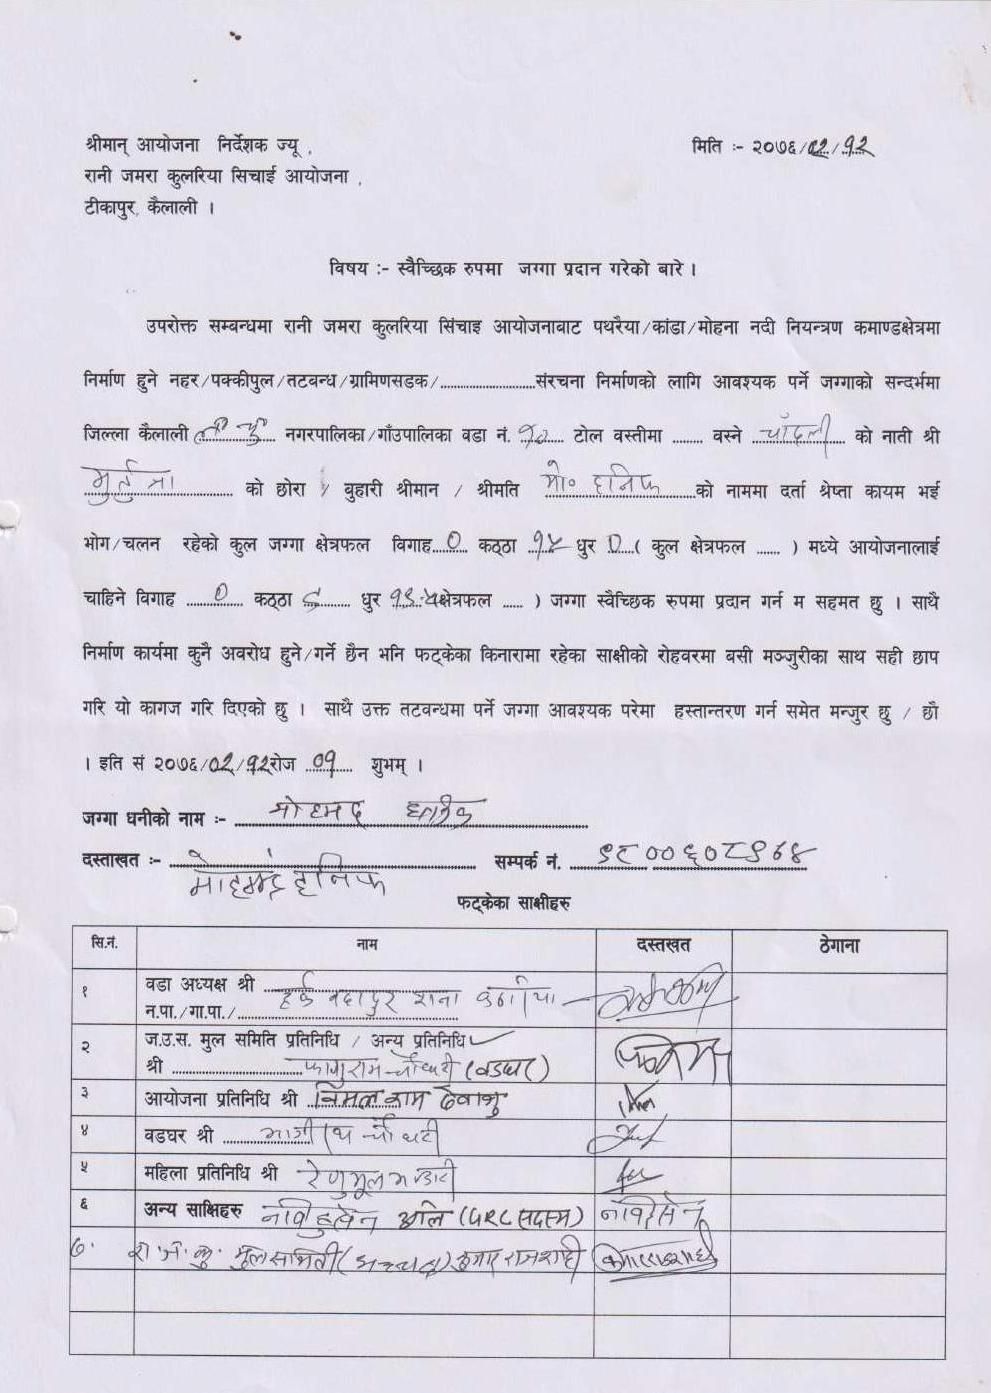 श्रीमान् आयोजना निर्देशक ज्यू ,
मिति :- २०७६/०२/१२
रानी जमरा कुलरिया सिचाई आयोजना ,
टीकापुर, कैलाली ।
विषय :- स्वैच्छिक रुपमा जग्गा प्रदान गरेको बारे ।
उपरोक्त सम्बन्धमा रानी जमरा कुलरिया सिंचाइ आयोजनाबाट पथरैया/कांडा/मोहना नदी नियन्त्रण कमाण्डक्षेत्रमा
निर्माण हुने नहर/पक्कीपुल/तटबन्ध/ग्रामिणसडक/........................संरचना निर्माणको लागि आवश्यक पर्ने जग्गाको सन्दर्भमा
जिल्ला कैलाली नगरपालिका/गाँउपालिका वडा नं. १० टोल वस्तीमा ........ वस्ने चाँदली को नाती श्री
मुर्तुजा को छोरा / बुहारी श्रीमान / श्रीमति मो० हनिफ को नाममा दर्ता श्रेष्ता कायम भई
भोग/चलन रहेको कुल जग्गा क्षेत्रफल विगाह ० कठ्ठा १५ धुर ० ( कुल क्षेत्रफल ...... ) मध्ये आयोजनालाई
चाहिने विगाह ० कठ्ठा ८ धुर क्षेत्रफल ..... ) जग्गा स्वैच्छिक रुपमा प्रदान गर्न म सहमत छु । साथै
निर्माण कार्यमा कुनै अवरोध हुने/गर्ने छैन भनि फट्केका किनारामा रहेका साक्षीको रोहवरमा बसी मञ्जुरीका साथ सही छाप
गरि यो कागज गरि दिएको छु । साथै उक्त तटवन्धमा पर्ने जग्गा आवश्यक परेमा हस्तान्तरण गर्न समेत मन्जुर छु / छौ
। इति सं २०७६/०२/१२रोज ०१ शुभम् ।
जग्गा धनीको नाम :- मोहमद हनिफ
दस्ताखत :- मोहमद हनिफ सम्पर्क नं. ९८००६०८९७४
फट्केका साक्षीहरु
सि.नं. नाम दस्तखत ठेगाना
१ वडा अध्यक्ष श्री हर्क बहादुर राना
न.पा./गा.पा./
२ ज.उ.स. मुल समिति प्रतिनिधि / अन्य प्रतिनिधि
श्री फागुराम चौधरी (वडघर)
३ आयोजना प्रतिनिधि श्री निर्मल राम
४ वडघर श्री चौधरी
५ महिला प्रतिनिधि श्री रेणु
६ अन्य साक्षिहरु नविहुसेन अलि (GRC सदस्य)
७. रा. ज. कु. मुल समिती (अध्यक्ष) कुमार राजशाही